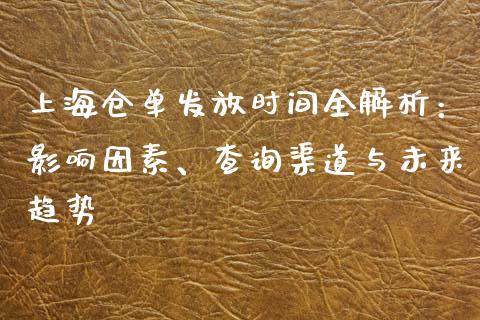 上海仓单发放时间全解析：
影响因素、查询渠道与未来
趋势